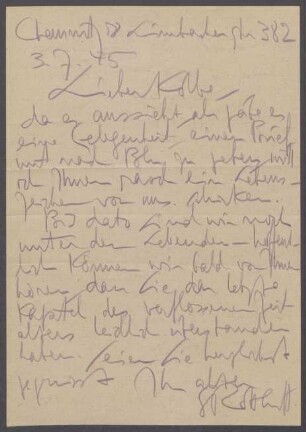 Chemnitz 18 Limbacherstr 382
3.7.45
Lieber Kolbe,
da es aussieht als gäbe es
eine Gelegenheit einen Brief
mit nach Bln zu geben will
ich Ihnen rasch ein Lebens-
zeichen von uns schicken.
Bis dato sind wir noch
unter den Lebenden – hoffent-
lich können wir bald von Ihnen
hören dass Sie das letzte
Kapitel des verflossenen Zeit-
alters leidlich überstanden
haben. Seien Sie herzlichst
gegrüsst Ihr alter